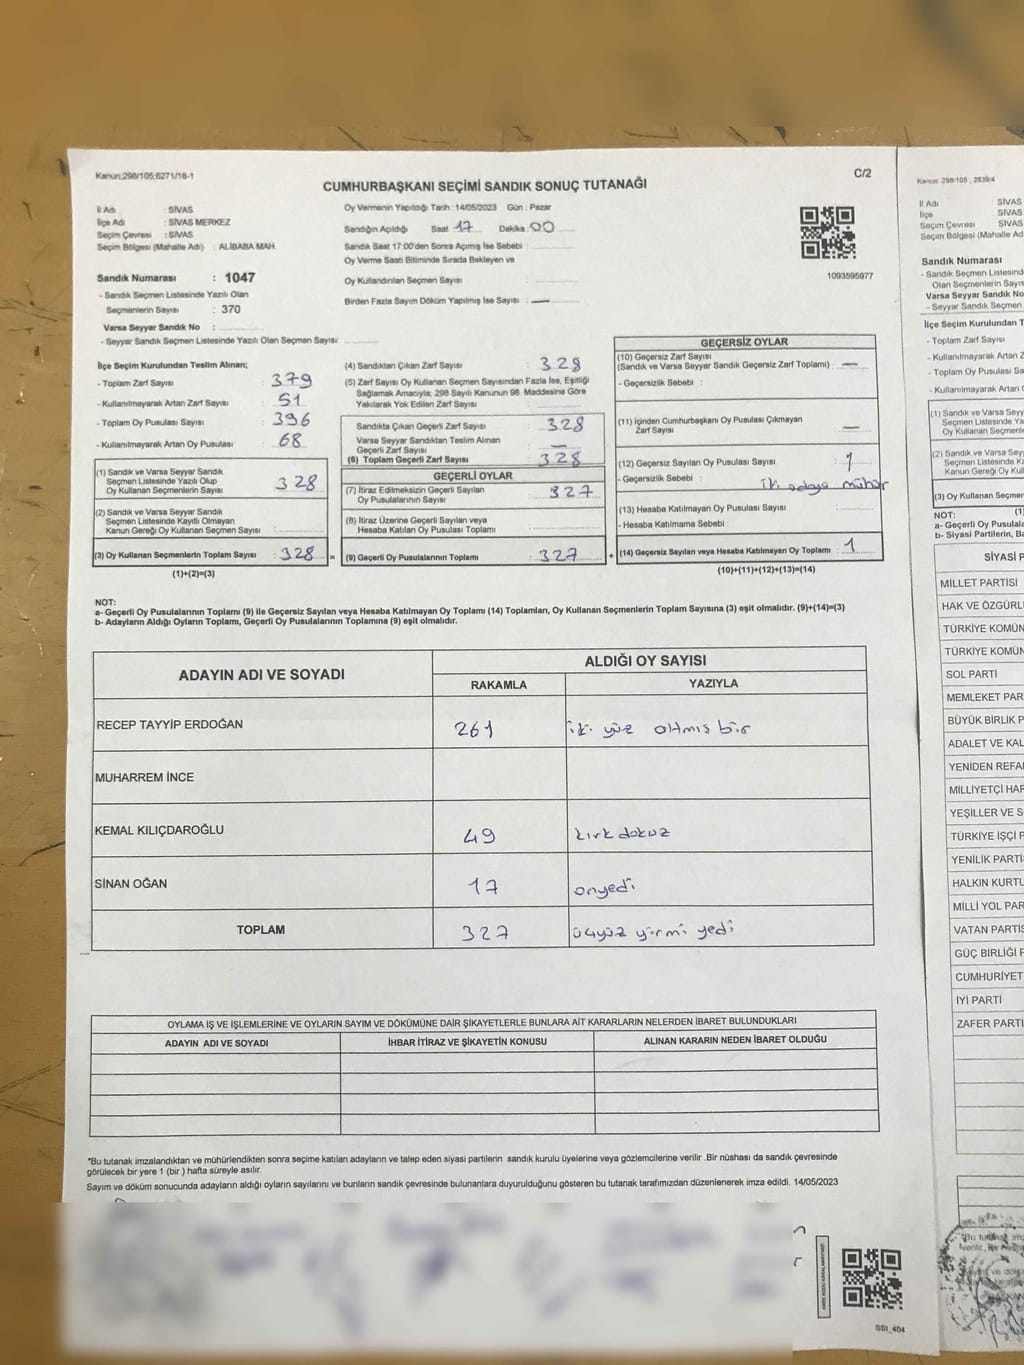 Kanun;298/105;6271/18-1
C/2
CUMHURBAŞKANI SEÇİMİ SANDIK SONUÇ TUTANAĞI
İl Adı : SİVAS
İlçe Adı : SİVAS MERKEZ
Seçim Çevresi : SİVAS
Seçim Bölgesi (Mahalle Adı) : ALİBABA MAH.
Sandık Numarası : 1047
- Sandık Seçmen Listesinde Yazılı Olan
Seçmenlerin Sayısı : 370
Varsa Seyyar Sandık No :
- Seyyar Sandık Seçmen Listesinde Yazılı Olan Seçmen Sayısı:
Oy Vermenin Yapıldığı Tarih : 14/05/2023 Gün : Pazar
Sandığın Açıldığı Saat 17 Dakika 00
Sandık Saat 17:00'den Sonra Açmış İse Sebebi :
Oy Verme Saati Bitiminde Sırada Bekleyen ve
Oy Kullandırılan Seçmen Sayısı :
Birden Fazla Sayım Döküm Yapılmış İse Sayısı : —
1093595977
İlçe Seçim Kurulundan Teslim Alınan;
- Toplam Zarf Sayısı : 379
- Kullanılmayarak Artan Zarf Sayısı : 51
- Toplam Oy Pusulası Sayısı : 396
- Kullanılmayarak Artan Oy Pusulası : 68
(1) Sandık ve Varsa Seyyar Sandık
Seçmen Listesinde Yazılı Olup
Oy Kullanan Seçmenlerin Sayısı : 328
(2) Sandık ve Varsa Seyyar Sandık
Seçmen Listesinde Kayıtlı Olmayan
Kanun Gereği Oy Kullanan Seçmen Sayısı :
(3) Oy Kullanan Seçmenlerin Toplam Sayısı : 328 =
(1)+(2)=(3)
(4) Sandıktan Çıkan Zarf Sayısı : 328
(5) Zarf Sayısı Oy Kullanan Seçmen Sayısından Fazla İse, Eşitliği
Sağlamak Amacıyla; 298 Sayılı Kanunun 98. Maddesine Göre
Yakılarak Yok Edilen Zarf Sayısı :
Sandıkta Çıkan Geçerli Zarf Sayısı : 328
Varsa Seyyar Sandıktan Teslim Alınan
Geçerli Zarf Sayısı : —
(6) Toplam Geçerli Zarf Sayısı : 328
GEÇERLİ OYLAR
(7) İtiraz Edilmeksizin Geçerli Sayılan
Oy Pusulalarının Sayısı : 327
(8) İtiraz Üzerine Geçerli Sayılan veya
Hesaba Katılan Oy Pusulası Toplamı :
(9) Geçerli Oy Pusulalarının Toplamı : 327 +
GEÇERSİZ OYLAR
(10) Geçersiz Zarf Sayısı
(Sandık ve Varsa Seyyar Sandık Geçersiz Zarf Toplamı) : —
- Geçersizlik Sebebi :
(11) İçinden Cumhurbaşkanı Oy Pusulası Çıkmayan
Zarf Sayısı : —
(12) Geçersiz Sayılan Oy Pusulası Sayısı : 1
- Geçersizlik Sebebi : iki adaya mühür
(13) Hesaba Katılmayan Oy Pusulası Sayısı :
- Hesaba Katılmama Sebebi :
(14) Geçersiz Sayılan veya Hesaba Katılmayan Oy Toplamı : 1
(10)+(11)+(12)+(13)=(14)
NOT:
a- Geçerli Oy Pusulalarının Toplamı (9) ile Geçersiz Sayılan veya Hesaba Katılmayan Oy Toplamı (14) Toplamları, Oy Kullanan Seçmenlerin Toplam Sayısına (3) eşit olmalıdır. (9)+(14)=(3)
b- Adayların Aldığı Oyların Toplamı, Geçerli Oy Pusulalarının Toplamına (9) eşit olmalıdır.
ADAYIN ADI VE SOYADI
ALDIĞI OY SAYISI
RAKAMLA YAZIYLA
RECEP TAYYİP ERDOĞAN 261 iki yüz altmış bir
MUHARREM İNCE
KEMAL KILIÇDAROĞLU 49 kırk dokuz
SİNAN OĞAN 17 onyedi
TOPLAM 327 üçyüz yirmi yedi
OYLAMA İŞ VE İŞLEMLERİNE VE OYLARIN SAYIM VE DÖKÜMÜNE DAİR ŞİKAYETLERLE BUNLARA AİT KARARLARIN NELERDEN İBARET BULUNDUKLARI
ADAYIN ADI VE SOYADI İHBAR İTİRAZ VE ŞİKAYETİN KONUSU ALINAN KARARIN NEDEN İBARET OLDUĞU
*Bu tutanak imzalandıktan ve mühürlendikten sonra seçime katılan adayların ve talep eden siyasi partilerin sandık kurulu üyelerine veya gözlemcilerine verilir .Bir nüshası da sandık çevresinde
görülecek bir yere 1 (bir ) hafta süreyle asılır.
Sayım ve döküm sonucunda adayların aldığı oyların sayılarını ve bunların sandık çevresinde bulunanlara duyurulduğunu gösteren bu tutanak tarafımızdan düzenlenerek imza edildi. 14/05/2023
SSI_404
Kanun: 298/105 , 2839/4
İl Adı SİVAS
İlçe SİVAS
Seçim Çevresi SİVAS
Seçim Bölgesi (Mahalle Ad
Sandık Numarası
- Sandık Seçmen Listesind
Olan Seçmenlerin Sayıs
Varsa Seyyar Sandık No
- Seyyar Sandık Seçmen
İlçe Seçim Kurulundan T
- Toplam Zarf Sayısı
- Kullanılmayarak Artan
- Toplam Oy Pusulası Sa
- Kullanılmayarak Artan O
(1) Sandık ve Varsa Seyyar
Seçmen Listesinde Yazılı
Oy Kullanan Seçmenleri
(2) Sandık ve Varsa Seyya
Seçmen Listesinde Ka
Kanun Gereği Oy Kulla
(3) Oy Kullanan Seçmen
(1)
NOT:
a- Geçerli Oy Pusula
b- Siyasi Partilerin, Ba
SİYASİ P
MİLLET PARTİSİ
HAK VE ÖZGÜRLÜ
TÜRKİYE KOMÜN
TÜRKİYE KOMÜN
SOL PARTİ
MEMLEKET PAR
BÜYÜK BİRLİK P
ADALET VE KAL
YENİDEN REFA
MİLLİYETÇİ HAR
YEŞİLLER VE S
TÜRKİYE İŞÇİ P
YENİLİK PARTİ
HALKIN KURTU
MİLLİ YOL PAR
VATAN PARTİS
GÜÇ BİRLİĞİ P
CUMHURİYET
İYİ PARTİ
ZAFER PARTİ